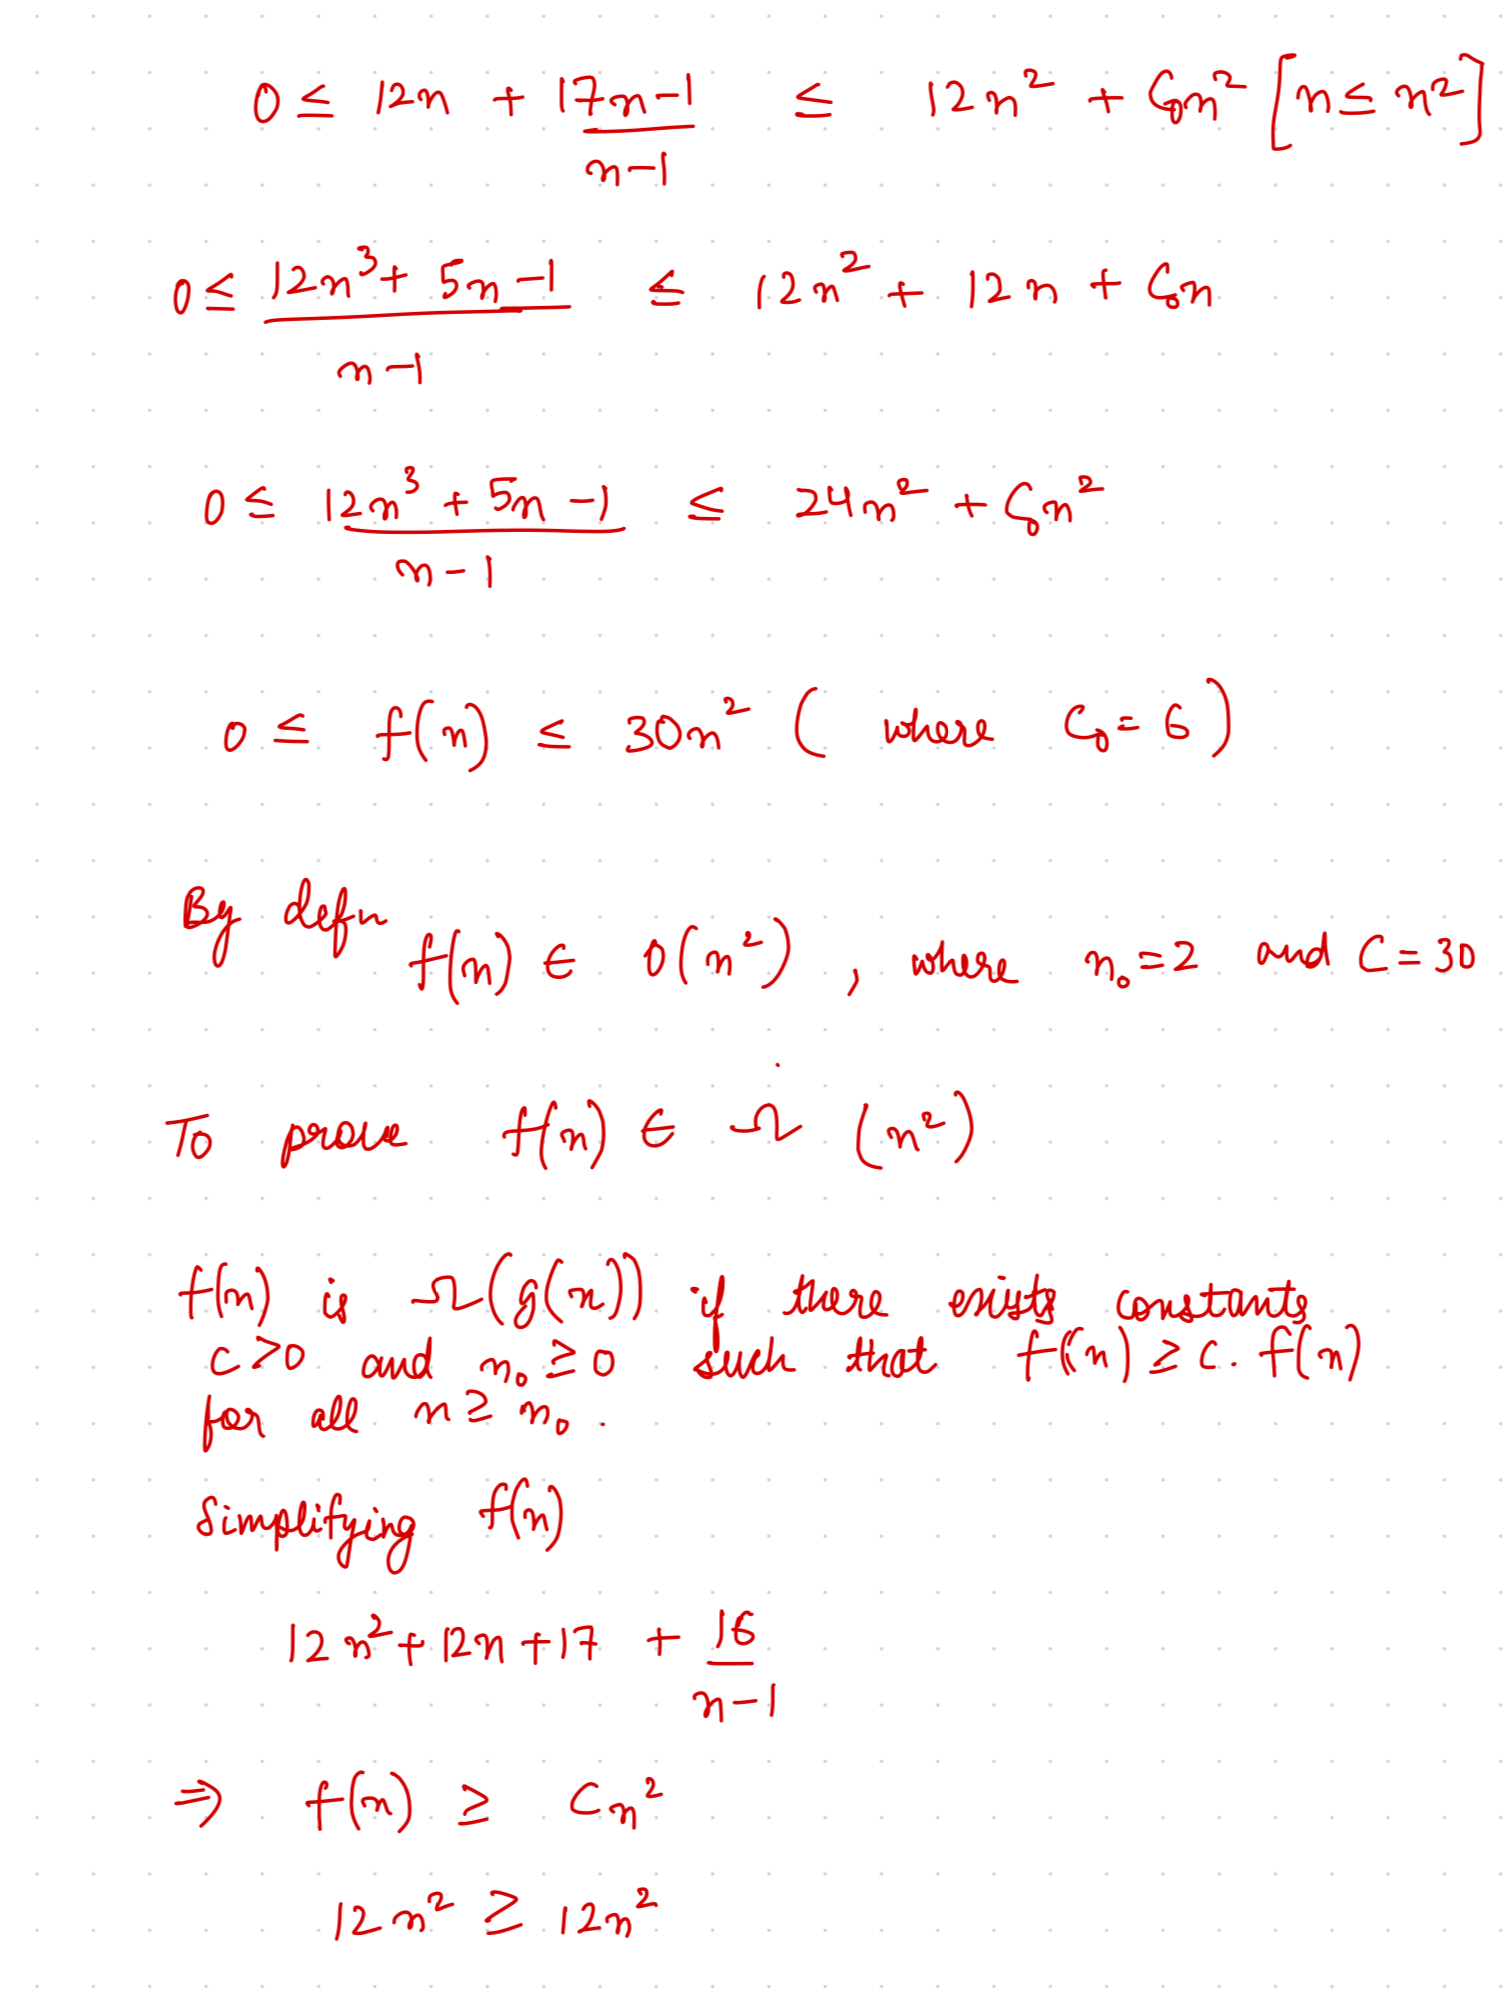 0 ≤ 12n + 17n-1/n-1 ≤ 12n² + C₀n² [n ≤ n²]
0 ≤ 12n³ + 5n - 1/n-1 ≤ 12n² + 12n + C₀n
0 ≤ 12n³ + 5n - 1/n-1 ≤ 24n² + C₀n²
0 ≤ f(n) ≤ 30n² ( where C₀ = 6 )
By defn f(n) ∈ O(n²) , where n₀ = 2 and C = 30
To prove f(n) ∈ Ω (n²)
f(n) is Ω(g(n)) if there exists constants
c>0 and n₀ ≥ 0 such that f(n) ≥ c. f(n)
for all n ≥ n₀ .
Simplifying f(n)
12n² + 12n + 17 + 16/n-1
⇒ f(n) ≥ Cn²
12n² ≥ 12n²